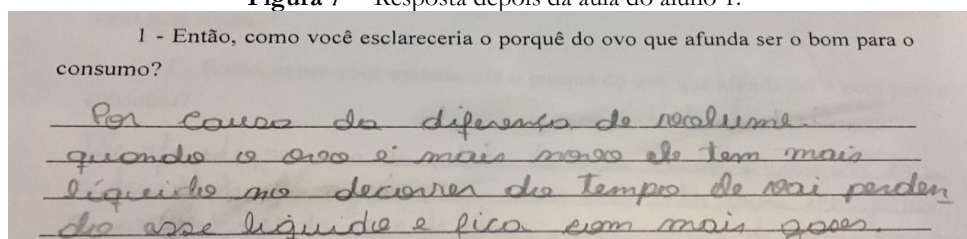 Figura 7 – Resposta depois da aula do aluno 1.
1 - Então, como você esclareceria o porquê do ovo que afunda ser o bom para o
consumo?
Por causa da diferença de volume.
quando o ovo é mais novo ele tem mais
líquido no decorrer do tempo ele vai perden
do esse liquido e fica com mais gases.